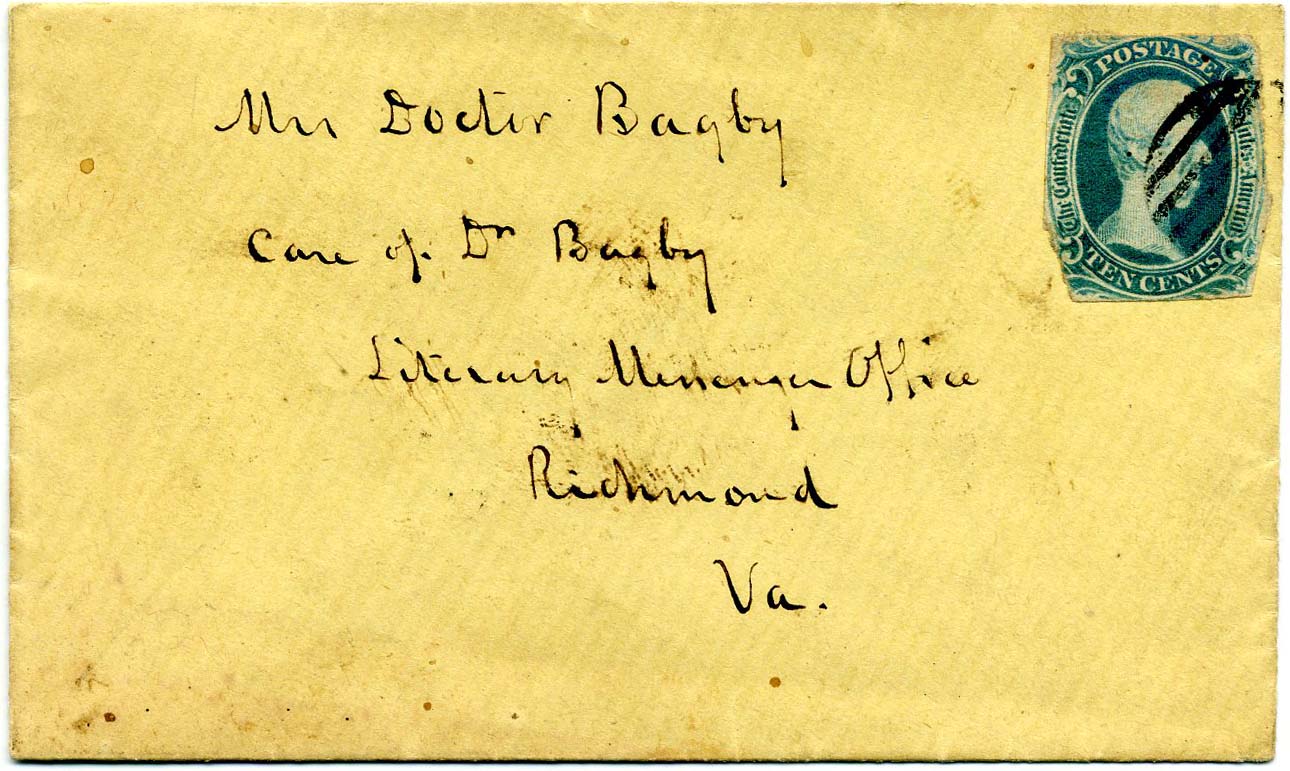 Mrs Doctor Bagby
Care of Dr Bagby
Literary Messenger Office
Richmond
Va.
POSTAGE
The Confederate States of America
TEN CENTS